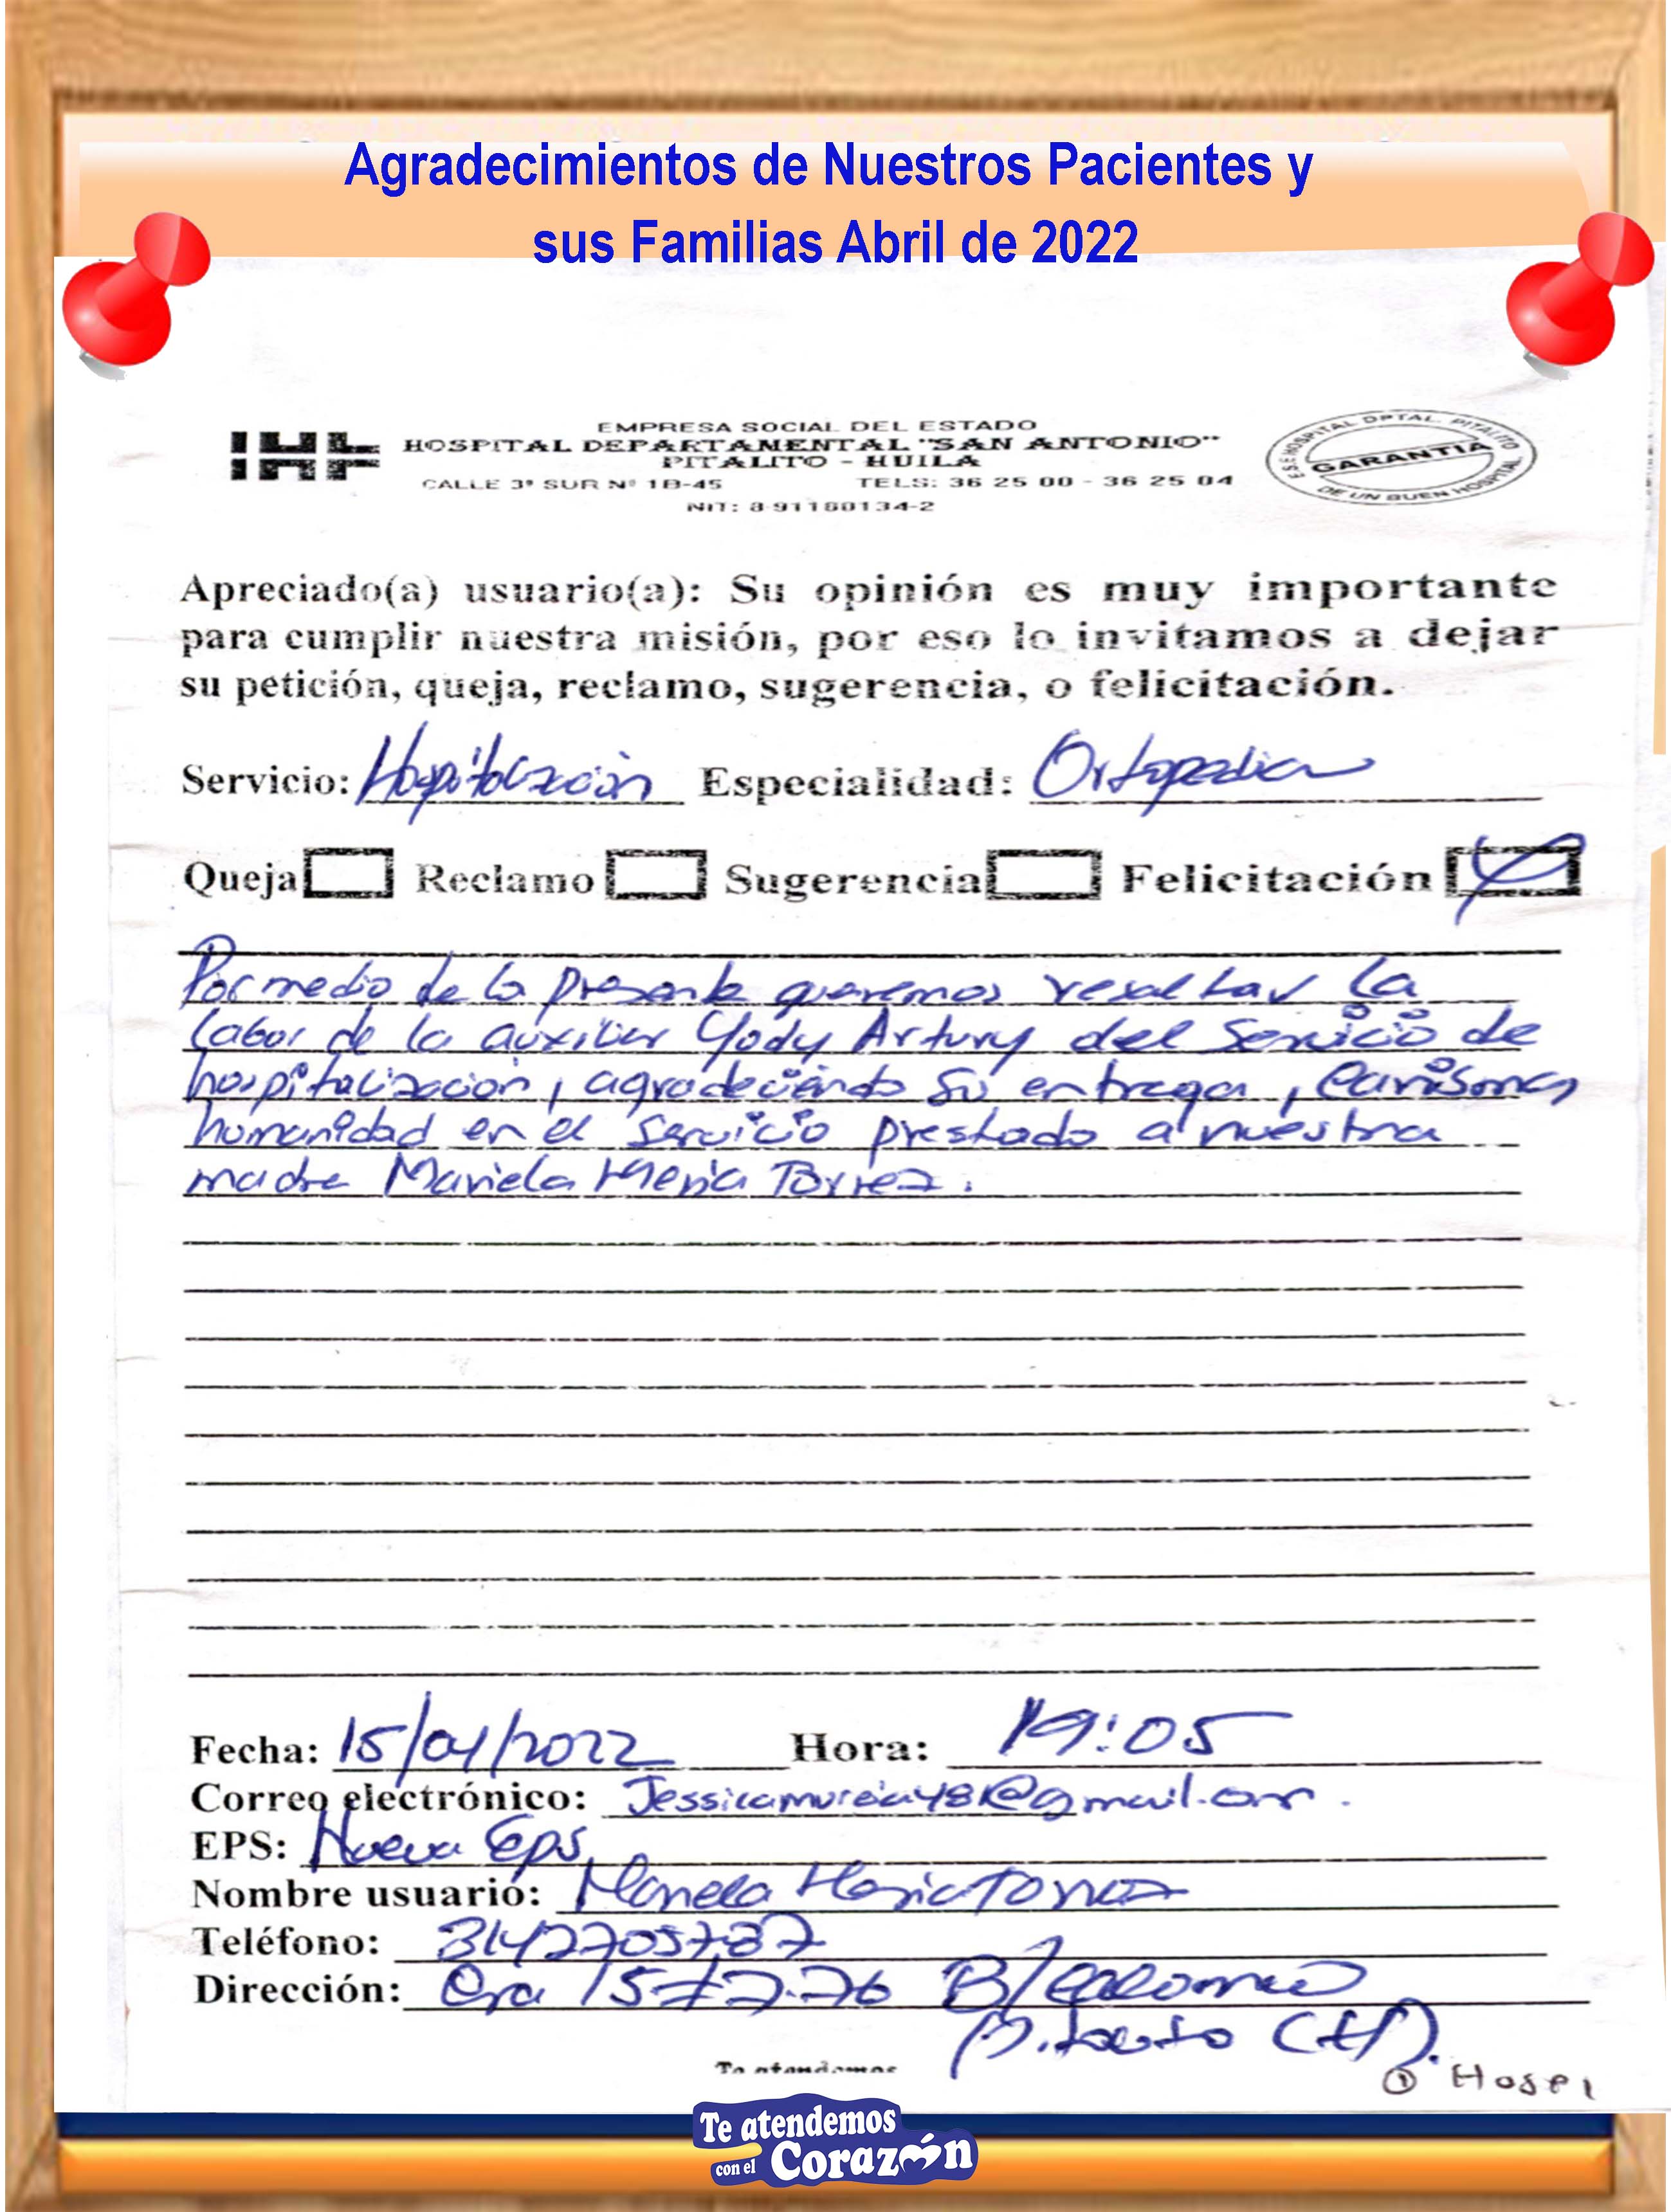 Agradecimientos de Nuestros Pacientes y
sus Familias Abril de 2022
EMPRESA SOCIAL DEL ESTADO
HOSPITAL DEPARTAMENTAL "SAN ANTONIO"
PITALITO - HUILA
CALLE 3ª SUR Nº 1B-45 TELS: 36 25 00 - 36 25 04
NIT: 8-91180134-2
E.S.E HOSPITAL DPTAL. PITALITO
GARANTIA
DE UN BUEN HOSPITAL
Apreciado(a) usuario(a): Su opinión es muy importante
para cumplir nuestra misión, por eso lo invitamos a dejar
su petición, queja, reclamo, sugerencia, o felicitación.
Servicio: Hospitalización Especialidad: Ortopedia
Queja Reclamo Sugerencia Felicitación
Por medio de la presente queremos resaltar la
labor de la auxiliar Yody Artury del servicio de
hospitalización, agradeciendo su entrega,
humanidad en el servicio prestado a nuestra
madre Mariela Mejia Torrez.
Fecha: 15/04/2022 Hora: 19:05
Correo electrónico:
EPS: Nueva Eps
Nombre usuario: Mariela Mejia Torrez
Teléfono:
Dirección:
Te atendemos
① Hospi
Te atendemos
con el Corazón